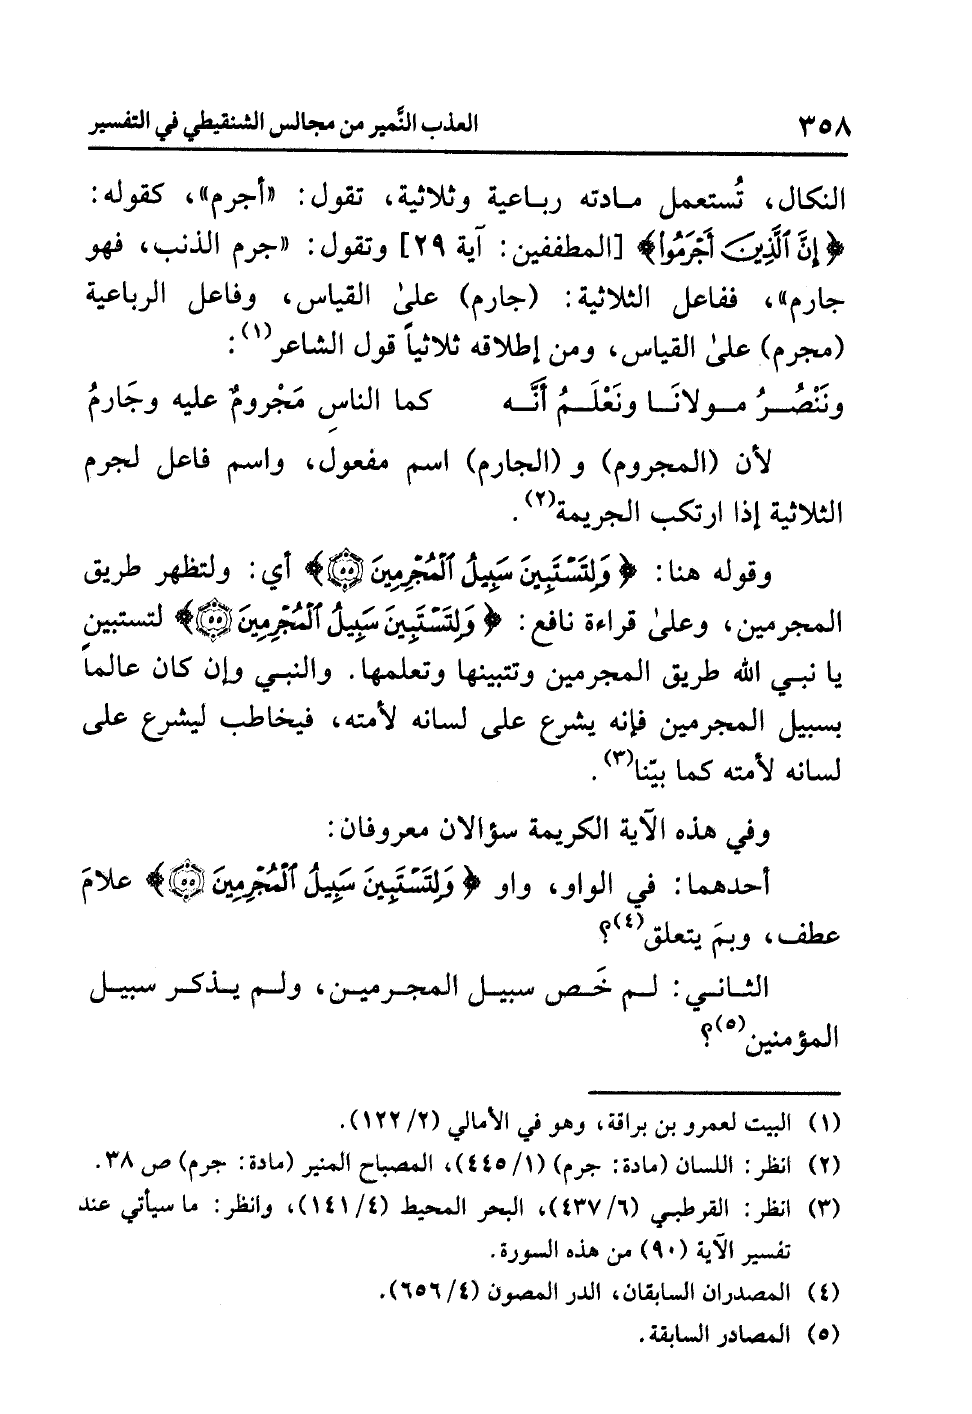 ٣٥٨ العذب النَّمير من مجالس الشنقيطي في التفسير
النكال، تُستعمل مادته رباعية وثلاثية، تقول: «أجرم»، كقوله:
﴿إِنَّ ٱلَّذِينَ أَجْرَمُوا۟﴾ [المطففين: آية ٢٩] وتقول: «جرم الذنب، فهو
جارم»، ففاعل الثلاثية: (جارم) علىٰ القياس، وفاعل الرباعية
(مجرم) علىٰ القياس، ومن إطلاقه ثلاثياً قول الشاعر(١):
ونَنْصُرُ مولانَا ونَعْلَمُ أنَّه كما الناسِ مَجْرومٌ عليه وجَارمُ
لأن (المجروم) و (الجارم) اسم مفعول، واسم فاعل لجرم
الثلاثية إذا ارتكب الجريمة(٢).
وقوله هنا: ﴿وَلِتَسْتَبِينَ سَبِيلُ ٱلْمُجْرِمِينَ ٥٥﴾ أي: ولتظهر طريق
المجرمين، وعلىٰ قراءة نافع: ﴿وَلِتَسْتَبِينَ سَبِيلُ ٱلْمُجْرِمِينَ ٥٥﴾ لتستبين
يا نبي الله طريق المجرمين وتتبينها وتعلمها. والنبي وإن كان عالماً
بسبيل المجرمين فإنه يشرع على لسانه لأمته، فيخاطب ليشرع على
لسانه لأمته كما بيّنا(٣).
وفي هذه الآية الكريمة سؤالان معروفان:
أحدهما: في الواو، واو ﴿وَلِتَسْتَبِينَ سَبِيلُ ٱلْمُجْرِمِينَ ٥٥﴾ علامَ
عطف، وبمَ يتعلق(٤)؟
الثاني: لم خَص سبيل المجرمين، ولم يذكر سبيل
المؤمنين(٥)؟
(١) البيت لعمرو بن براقة، وهو في الأمالي (١٢٢/٢).
(٢) انظر: اللسان (مادة: جرم) (٤٤٥/١)، المصباح المنير (مادة: جرم) ص ٣٨.
(٣) انظر: القرطبي (٤٣٧/٦)، البحر المحيط (١٤١/٤)، وانظر: ما سيأتي عند
تفسير الآية (٩٠) من هذه السورة.
(٤) المصدران السابقان، الدر المصون (٦٥٦/٤).
(٥) المصادر السابقة.